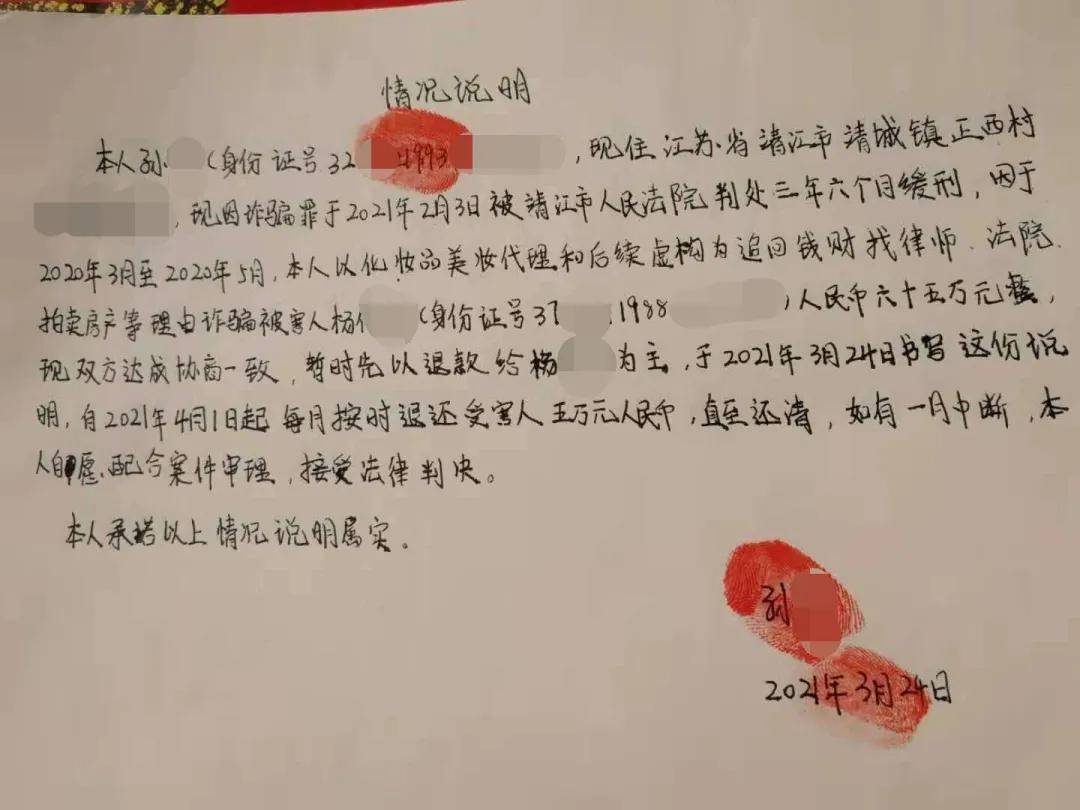 情况说明
本人孙 (身份证号32 1993 ,现住江苏省靖江市靖城镇正西村
,现因诈骗罪于2021年2月3日被靖江市人民法院判处三年六个月缓刑,因于
2020年3月至2020年5月,本人以化妆品美妆代理和后续虚构为追回钱财找律师、法院
拍卖房产等理由诈骗被害人杨 (身份证号37 1988 )人民币六十五万元整,
现双方达成协商一致,暂时先以退款给杨 为主,于2021年3月24日书写这份说
明,自2021年4月1日起每月按时退还受害人五万元人民币,直至还清,如有一月中断,本
人自愿配合案件审理,接受法律判决。
本人承诺以上情况说明属实。
孙
2021年3月24日